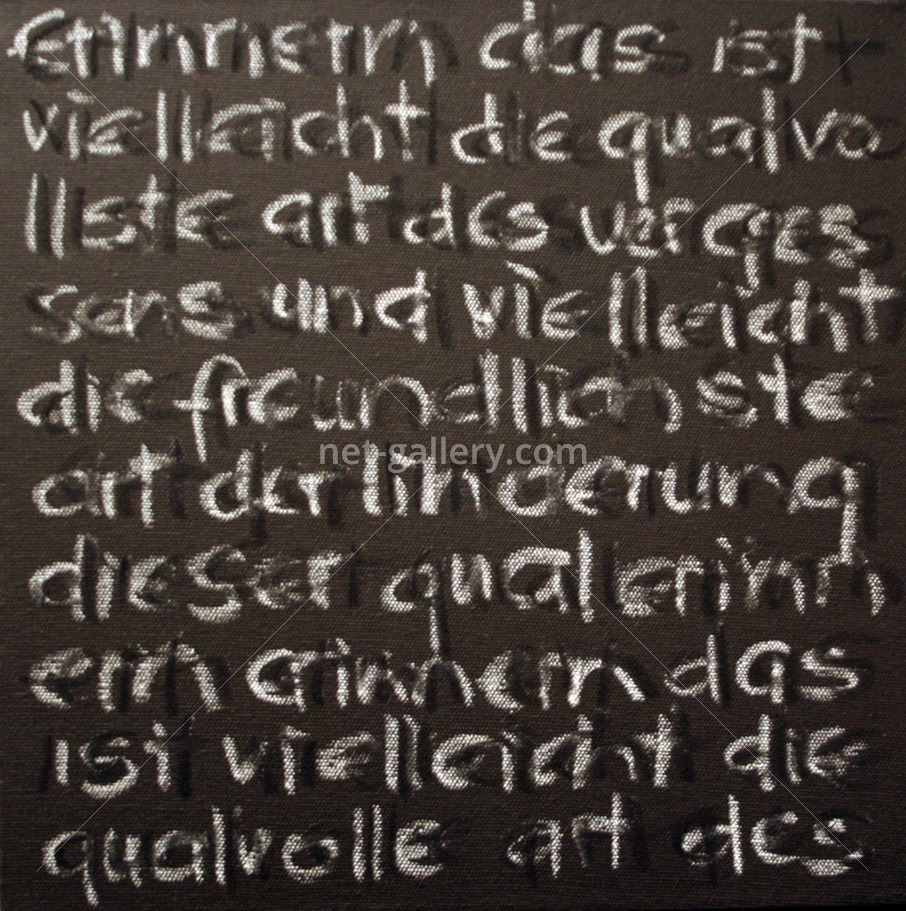 Erinnern das ist
vielleicht die qualvo
llste art des verges
sens und vielleicht
die freundlichste
art der linderung
dieser qual erinn
ern erinnern das
ist vielleicht die
qualvolle art des
net-gallery.com